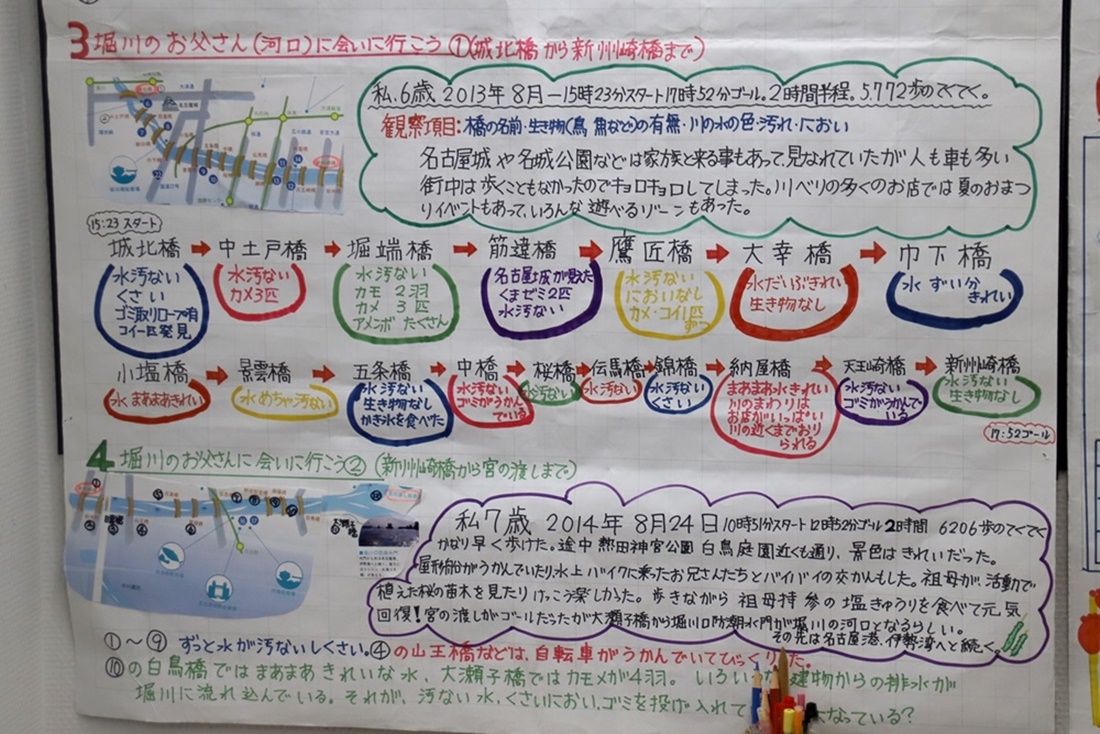 3 堀川のお父さん(河口)に会いに行こう ①(城北橋から新州崎橋まで)
私.6歳 2013年 8月ー15時23分スタート17時52分ゴール。2時間半程。5.772歩のてくてく。
観察項目:橋の名前・生き物(鳥 魚など)の有無・川の水の色・汚れ・におい
名古屋城や名城公園などは家族と来る事もあって、見なれていたが人も車も多い
街中は歩くこともなかったのでキョロキョロしてしまった。川べりの多くのお店では夏のおまつ
りイベントもあって、いろんな遊べるゾーンもあった。
15:23 スタート
城北橋 → 中土戸橋 → 堀端橋 → 筋違橋 → 鷹匠橋 → 大幸橋 → 巾下橋
水汚ない
くさい
ゴミ取りロープ有
コイ一匹発見
水汚ない
カメ3匹
水汚ない
カモ 2羽
カメ 3匹
アメンボ たくさん
名古屋城が見えた
くまゼミ2匹
水汚ない
水汚ない
においなし
カメ・コイ1匹
ずつ
水だいぶきれい
生き物なし
水 ずい分
きれい
小塩橋 → 景雲橋 → 五条橋 → 中橋 → 桜橋 → 伝馬橋 → 錦橋 → 納屋橋 → 天王崎橋 → 新州崎橋
水 まあまあきれい
水 めちゃ汚ない
水 汚ない
生き物なし
かき氷を食べた
水汚ない
ゴミがうかん
でいる
水汚ない
水汚ない
水汚ない
くさい
まあまあ水きれい
川のまわりは
お店がいっぱい
川の近くまでおり
られる
水汚ない
ゴミがうかんで
いる
水汚ない
生き物なし
17:52ゴール
4 堀川のお父さんに会いに行こう② (新州崎橋から宮の渡しまで)
私7歳 2014年 8月24日 10時51分スタート12時52分ゴール 2時間 6206歩のてくてく
かなり早く歩けた。途中 熱田神宮公園 白鳥庭園近くも通り、景色はきれいだった。
屋形船がうかんでいたり、水上バイクに乗ったお兄さんたちとバイバイの交かんもした。祖母が活動で
植えた桜の苗木を見たりけっこう楽しかった。歩きながら 祖母持参の塩きゅうりを食べて元気
回復!宮の渡しがゴールだったが大瀬子橋から堀川口防潮水門が堀川の河口となるらしい。
その先は名古屋港、伊勢湾へと続く。
①〜⑨ ずっと水が汚ないしくさい。④の山王橋などは、自転車がうかんでいてびっくりした。
⑩の白鳥橋ではまあまあきれいな水、大瀬子橋ではカモメが4羽。 いろいろな建物からの排水が
堀川に流れ込んでいる。それが、汚ない水、くさいにおい、ゴミを投げ入れて なっている?